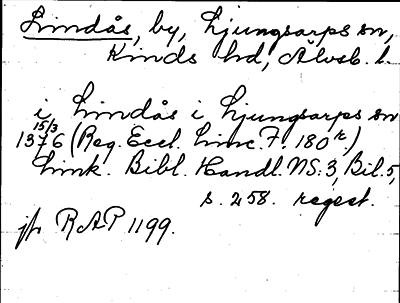 Limdås, by, Ljungsarps sn,
Kinds hd, Älvsb. l.
i Limdås i Ljungsarps sn
15/3 1376 (Reg. Eccl. Linc. F. 180 r.)
Link. Bibl. Handl. NS: 3, Bil. 5,
s. 258. regest.
jfr RAP 1199.